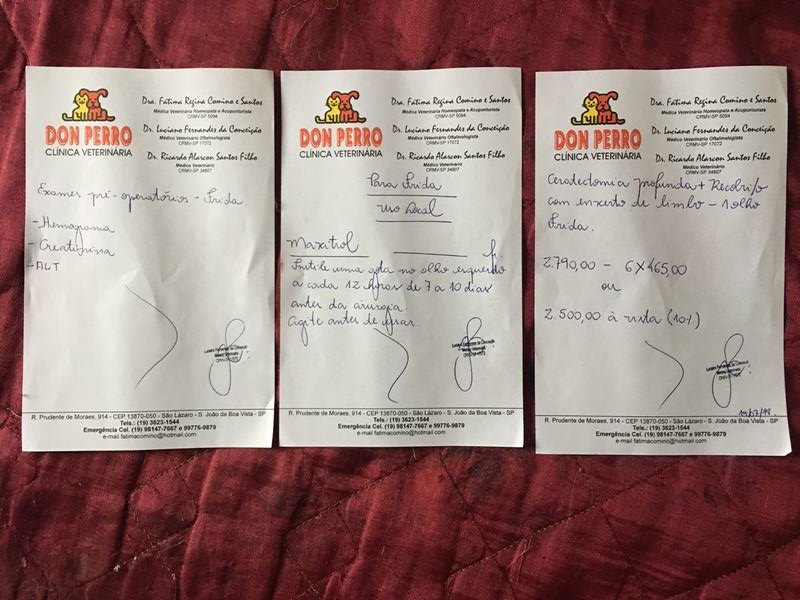 DON PERRO
CLÍNICA VETERINÁRIA
Dra. Fatima Regina Comino e Santos
Médica Veterinária Homeopata e Acupunturista
CRMV-SP 5094
Dr. Luciano Fernandes da Conceição
Médico Veterinário Oftalmologista
CRMV-SP 17072
Dr. Ricardo Alarcon Santos Filho
CRMV-SP 34807
Exames pré-operatórios - Frida.
- Hemograma
- Creatinina
- ALT
Luciano Fernandes da Conceição
Médico Veterinário
CRMV-SP 17072
R. Prudente de Moraes, 914 - CEP 13870-050 - São Lázaro - S. João da Boa Vista - SP
Tels.: (19) 3623-1544
Emergência Cel. (19) 98147-7667 e 99776-9879
e-mail fatimacomino@hotmail.com
DON PERRO
CLÍNICA VETERINÁRIA
Dra. Fatima Regina Comino e Santos
Médica Veterinária Homeopata e Acupunturista
CRMV-SP 5094
Dr. Luciano Fernandes da Conceição
Médico Veterinário Oftalmologista
CRMV-SP 17072
Dr. Ricardo Alarcon Santos Filho
CRMV-SP 34807
Para Frida
Uso Local
Maxitrol
Instile uma gota no olho esquerdo
a cada 12 horas de 7 a 10 dias
antes da cirurgia.
Agite antes de usar.
Luciano Fernandes da Conceição
Médico Veterinário
CRMV-SP 17072
R. Prudente de Moraes, 914 - CEP 13870-050 - São Lázaro - S. João da Boa Vista - SP
Tels.: (19) 3623-1544
Emergência Cel. (19) 98147-7667 e 99776-9879
e-mail fatimacomino@hotmail.com
DON PERRO
CLÍNICA VETERINÁRIA
Dra. Fatima Regina Comino e Santos
Médica Veterinária Homeopata e Acupunturista
CRMV-SP 5094
Dr. Luciano Fernandes da Conceição
Médico Veterinário Oftalmologista
CRMV-SP 17072
Dr. Ricardo Alarcon Santos Filho
CRMV-SP 34807
profunda +
com enxerto de limbo - 1 olho
Frida.
2.790,00 - 6 X 465,00
ou
2.500,00 à vista (10%)
Luciano Fernandes da Conceição
Médico Veterinário
CRMV-SP 17072
R. Prudente de Moraes, 914 - CEP 13870-050 - São Lázaro - S. João da Boa Vista - SP
Tels.: (19) 3623-1544
Emergência Cel. (19) 98147-7667 e 99776-9879
e-mail fatimacomino@hotmail.com